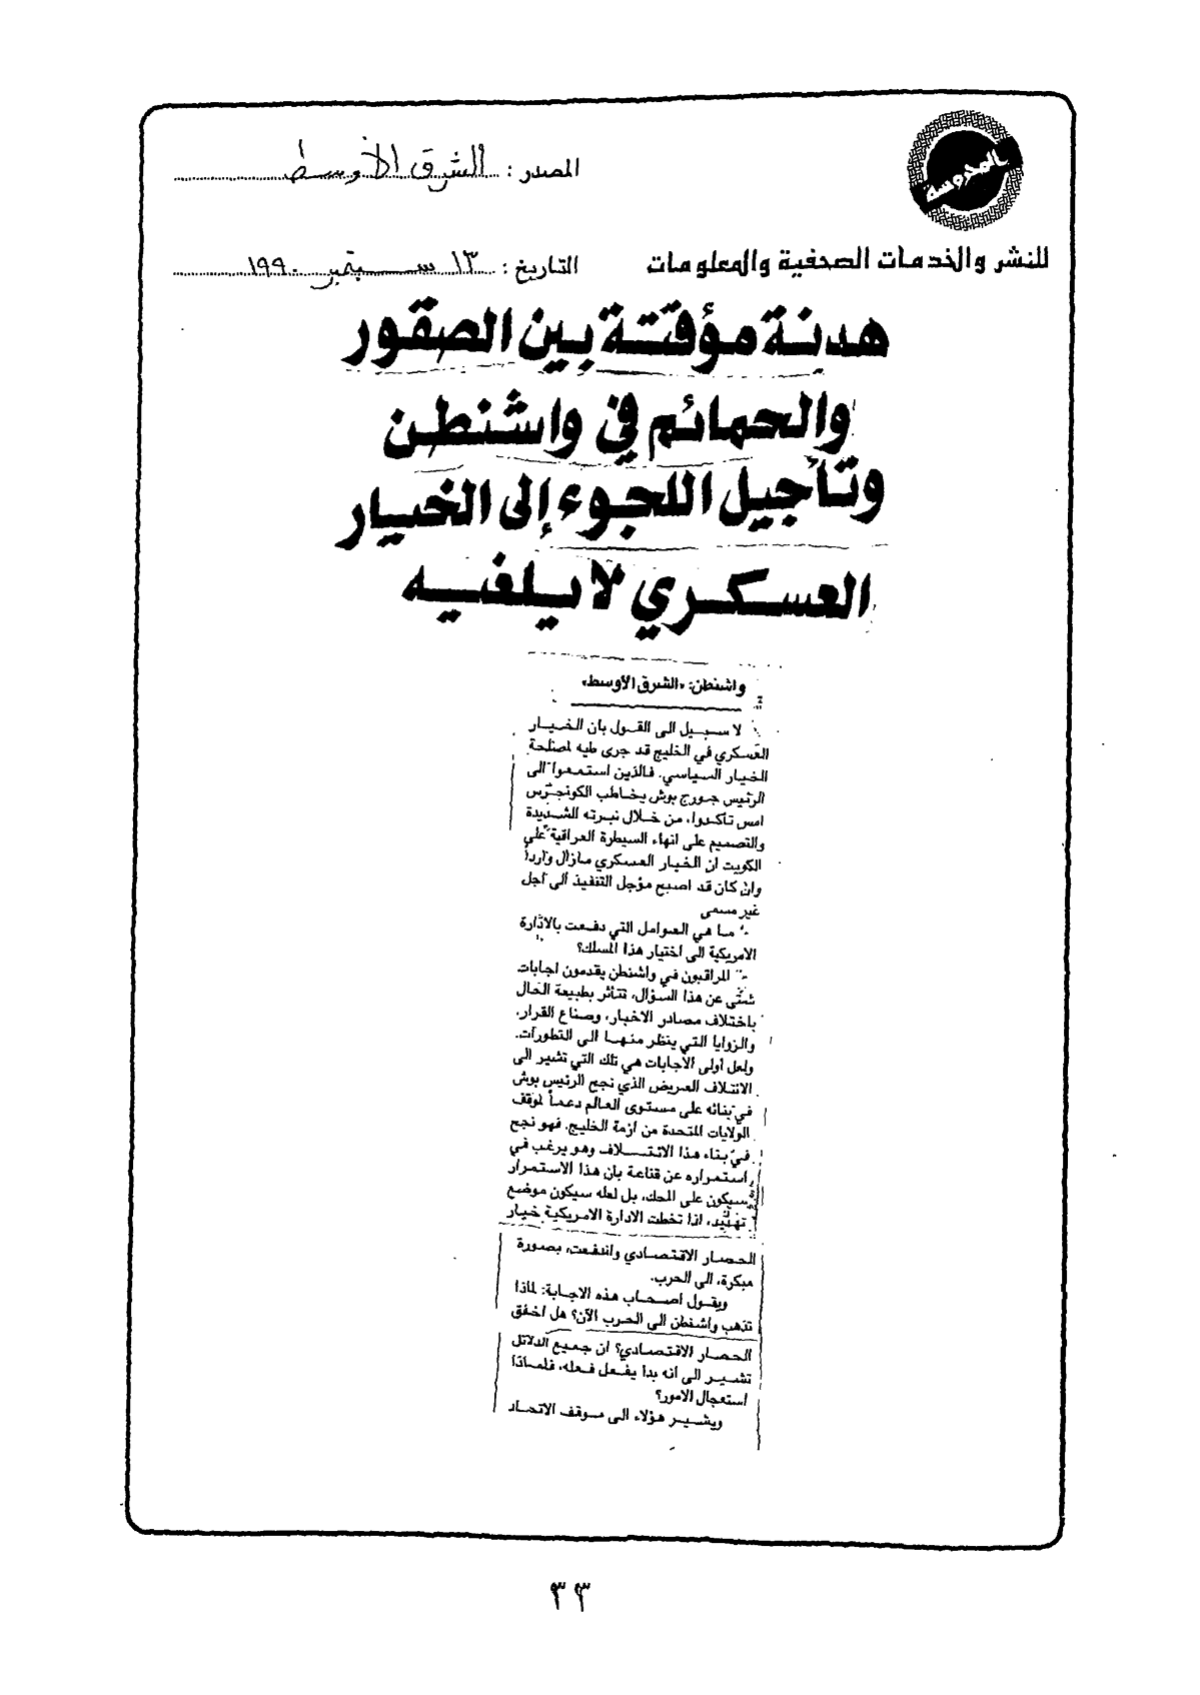 المحروسة
المصدر : الشرق الأوسط
للنشر والخدمات الصحفية والمعلومات
التاريخ : ١٣ سبتمبر ١٩٩٠
هدنة مؤقتة بين الصقور
والحمائم في واشنطن
وتأجيل اللجوء إلى الخيار
العسكري لا يلغيه
واشنطن: «الشرق الأوسط»
لا سبيل الى القول بان الخيار
العسكري في الخليج قد جرى طيه لمصلحة
الخيار السياسي. فالذين استمعوا الى
الرئيس جورج بوش يخاطب الكونجرس
امس تأكدوا، من خلال نبرته الشديدة
والتصميم على انهاء السيطرة العراقية على
الكويت ان الخيار العسكري مازال وارداً
وان كان قد اصبح مؤجل التنفيذ الى اجل
غير مسمى
ما هي العوامل التي دفعت بالادارة
الامريكية الى اختيار هذا المسلك؟
المراقبون في واشنطن يقدمون اجابات
شتى عن هذا السؤال، تتأثر بطبيعة الحال
باختلاف مصادر الاخبار، وصناع القرار،
والزوايا التي ينظر منها الى التطورات.
ولعل أولى الاجابات هي تلك التي تشير الى
الائتلاف العريض الذي نجح الرئيس بوش
في بنائه على مستوى العالم دعماً لموقف
الولايات المتحدة من ازمة الخليج. فهو نجح
في بناء هذا الائتلاف وهو يرغب في
استمراره عن قناعة بان هذا الاستمرار
سيكون على المحك، بل لعله سيكون موضع
تهديد، اذا تخطت الادارة الامريكية خيار
الحصار الاقتصادي واندفعت، بصورة
مبكرة، الى الحرب.
ويقول اصحاب هذه الاجابة: لماذا
تذهب واشنطن الى الحرب الآن؟ هل اخفق
الحصار الاقتصادي؟ ان جميع الدلائل
تشير الى انه بدا يفعل فعله، فلماذا
استعجال الامور؟
ويشير هؤلاء الى موقف الاتحاد
٣٣